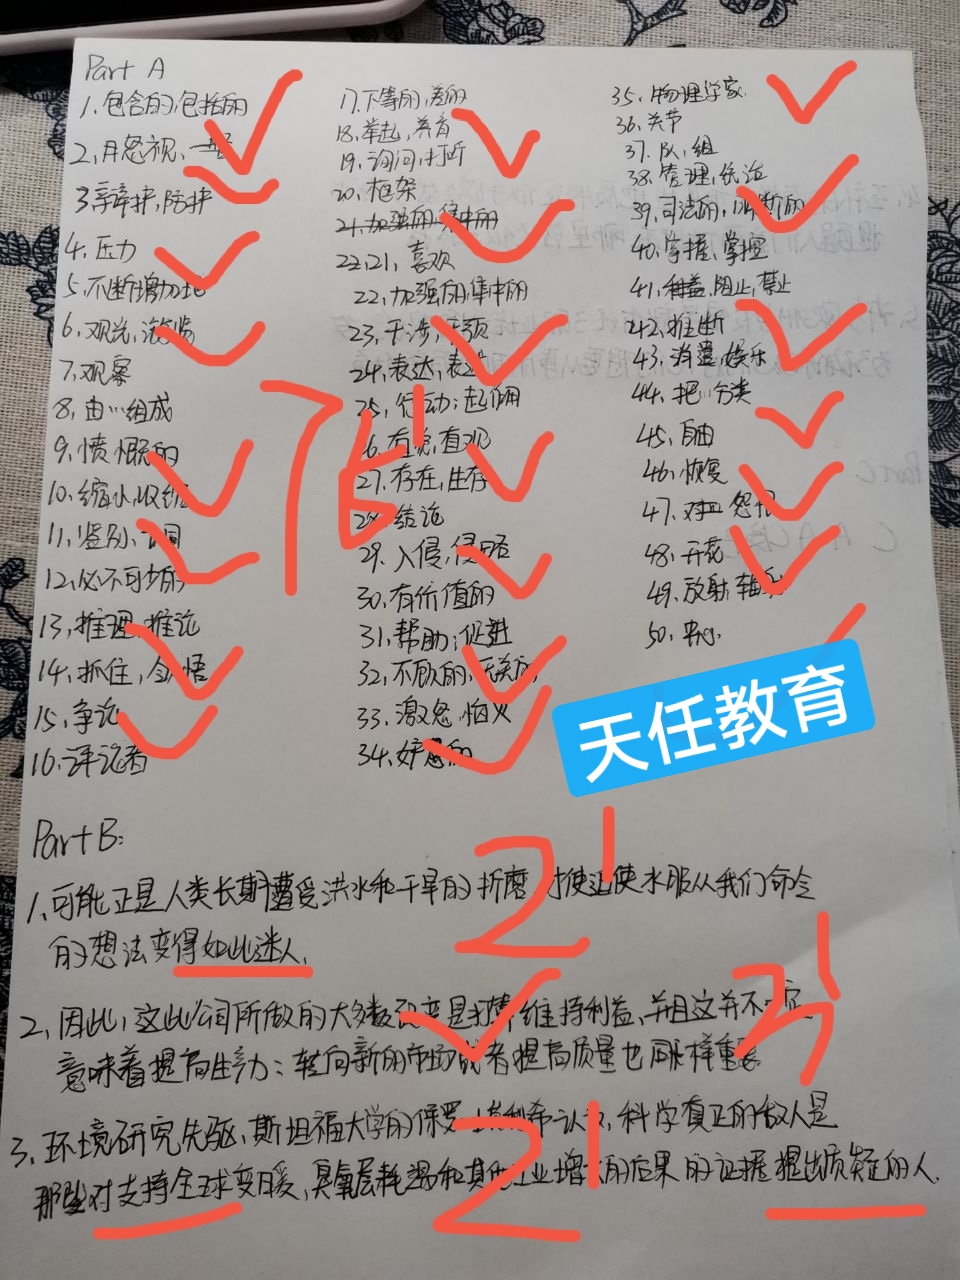 Part A
1、包含的,包括的
2、月忽视、
3、辩护,防护
4、压力
5、不断增加地
6、观光,游览
7、观察
8、由…组成
9、愤慨的
10、缩小,收缩
11、鉴别,
12、必不可少的
13、推理,推论
14、抓住,领悟
15、争论
16、评论者
17、下等的,差的
18、举起,养育
19、询问,打听
20、框架
21、加强的,集中的
22、21、喜欢
22、加强的,集中的
23、干涉,干预
24、表达,表达
25、行动;起作用
26、直觉,直观
27、存在,生存
28、结论
29、入侵,侵略
30、有价值的
31、帮助;促进
32、不顾的,无关的
33、激怒,恼火
34、妒忌的
35、物理学家
36、关节
37、队,组
38、管理,统治
39、司法的,
40、掌握,掌控
41、阻止,禁止
42、推断
43、消遣,娱乐
44、把…分类
45、自由
46、恢复
47、怨恨
48、开花
49、放射,
50、
76
天任教育
Part B:
1、可能正是人类长期遭受洪水和干旱的折磨,才使迫使水服从我们命令
的想法变得如此迷人.
2'
2、因此,这些公司所做的大多数改变是打算维持利益,并且这并不一定
意味着提高生产力;转向新的市场或者提高质量也同样重要
3、环境研究先驱,斯坦福大学的保罗·埃利希认为,科学真正的敌人是
那些对支持全球变暖,臭氧层耗竭和其他工业增长的后果的证据提出质疑的人.
2'